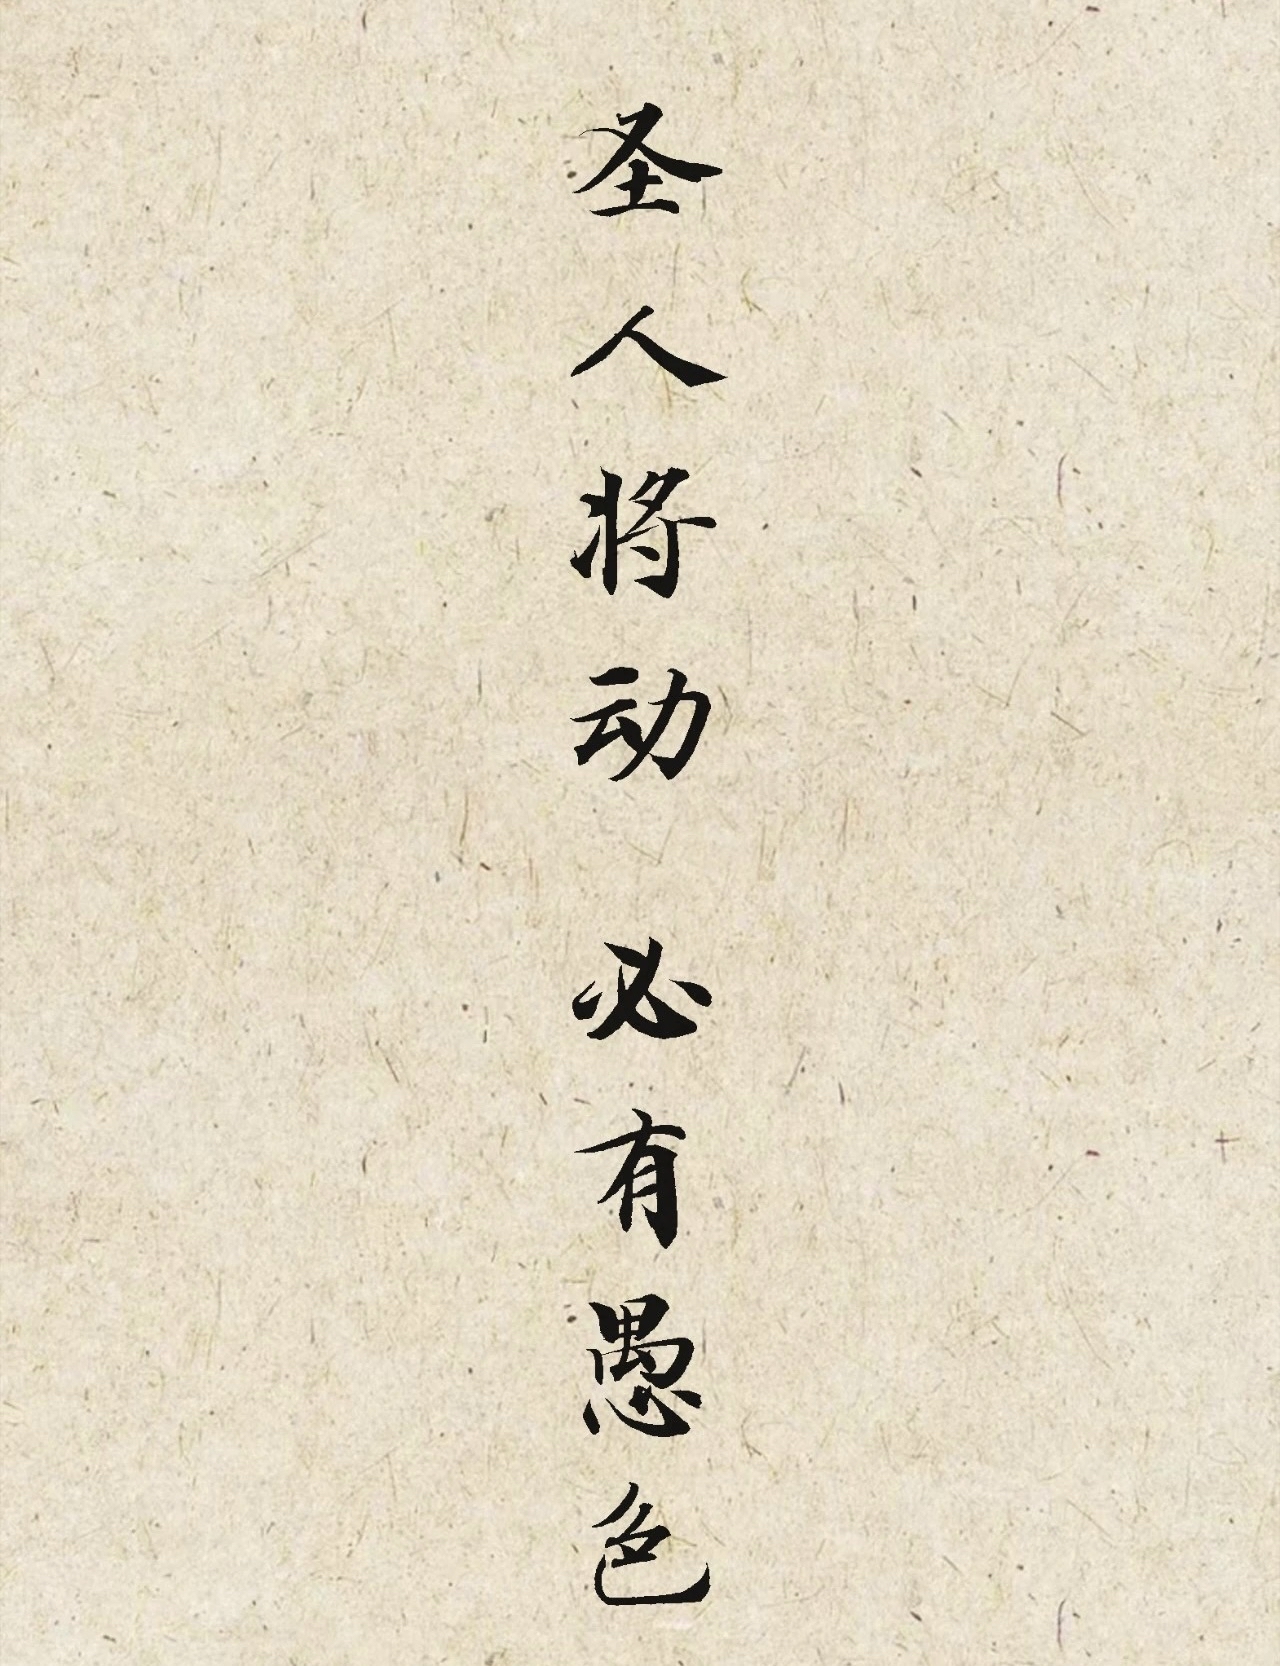 圣人将动 必有愚色